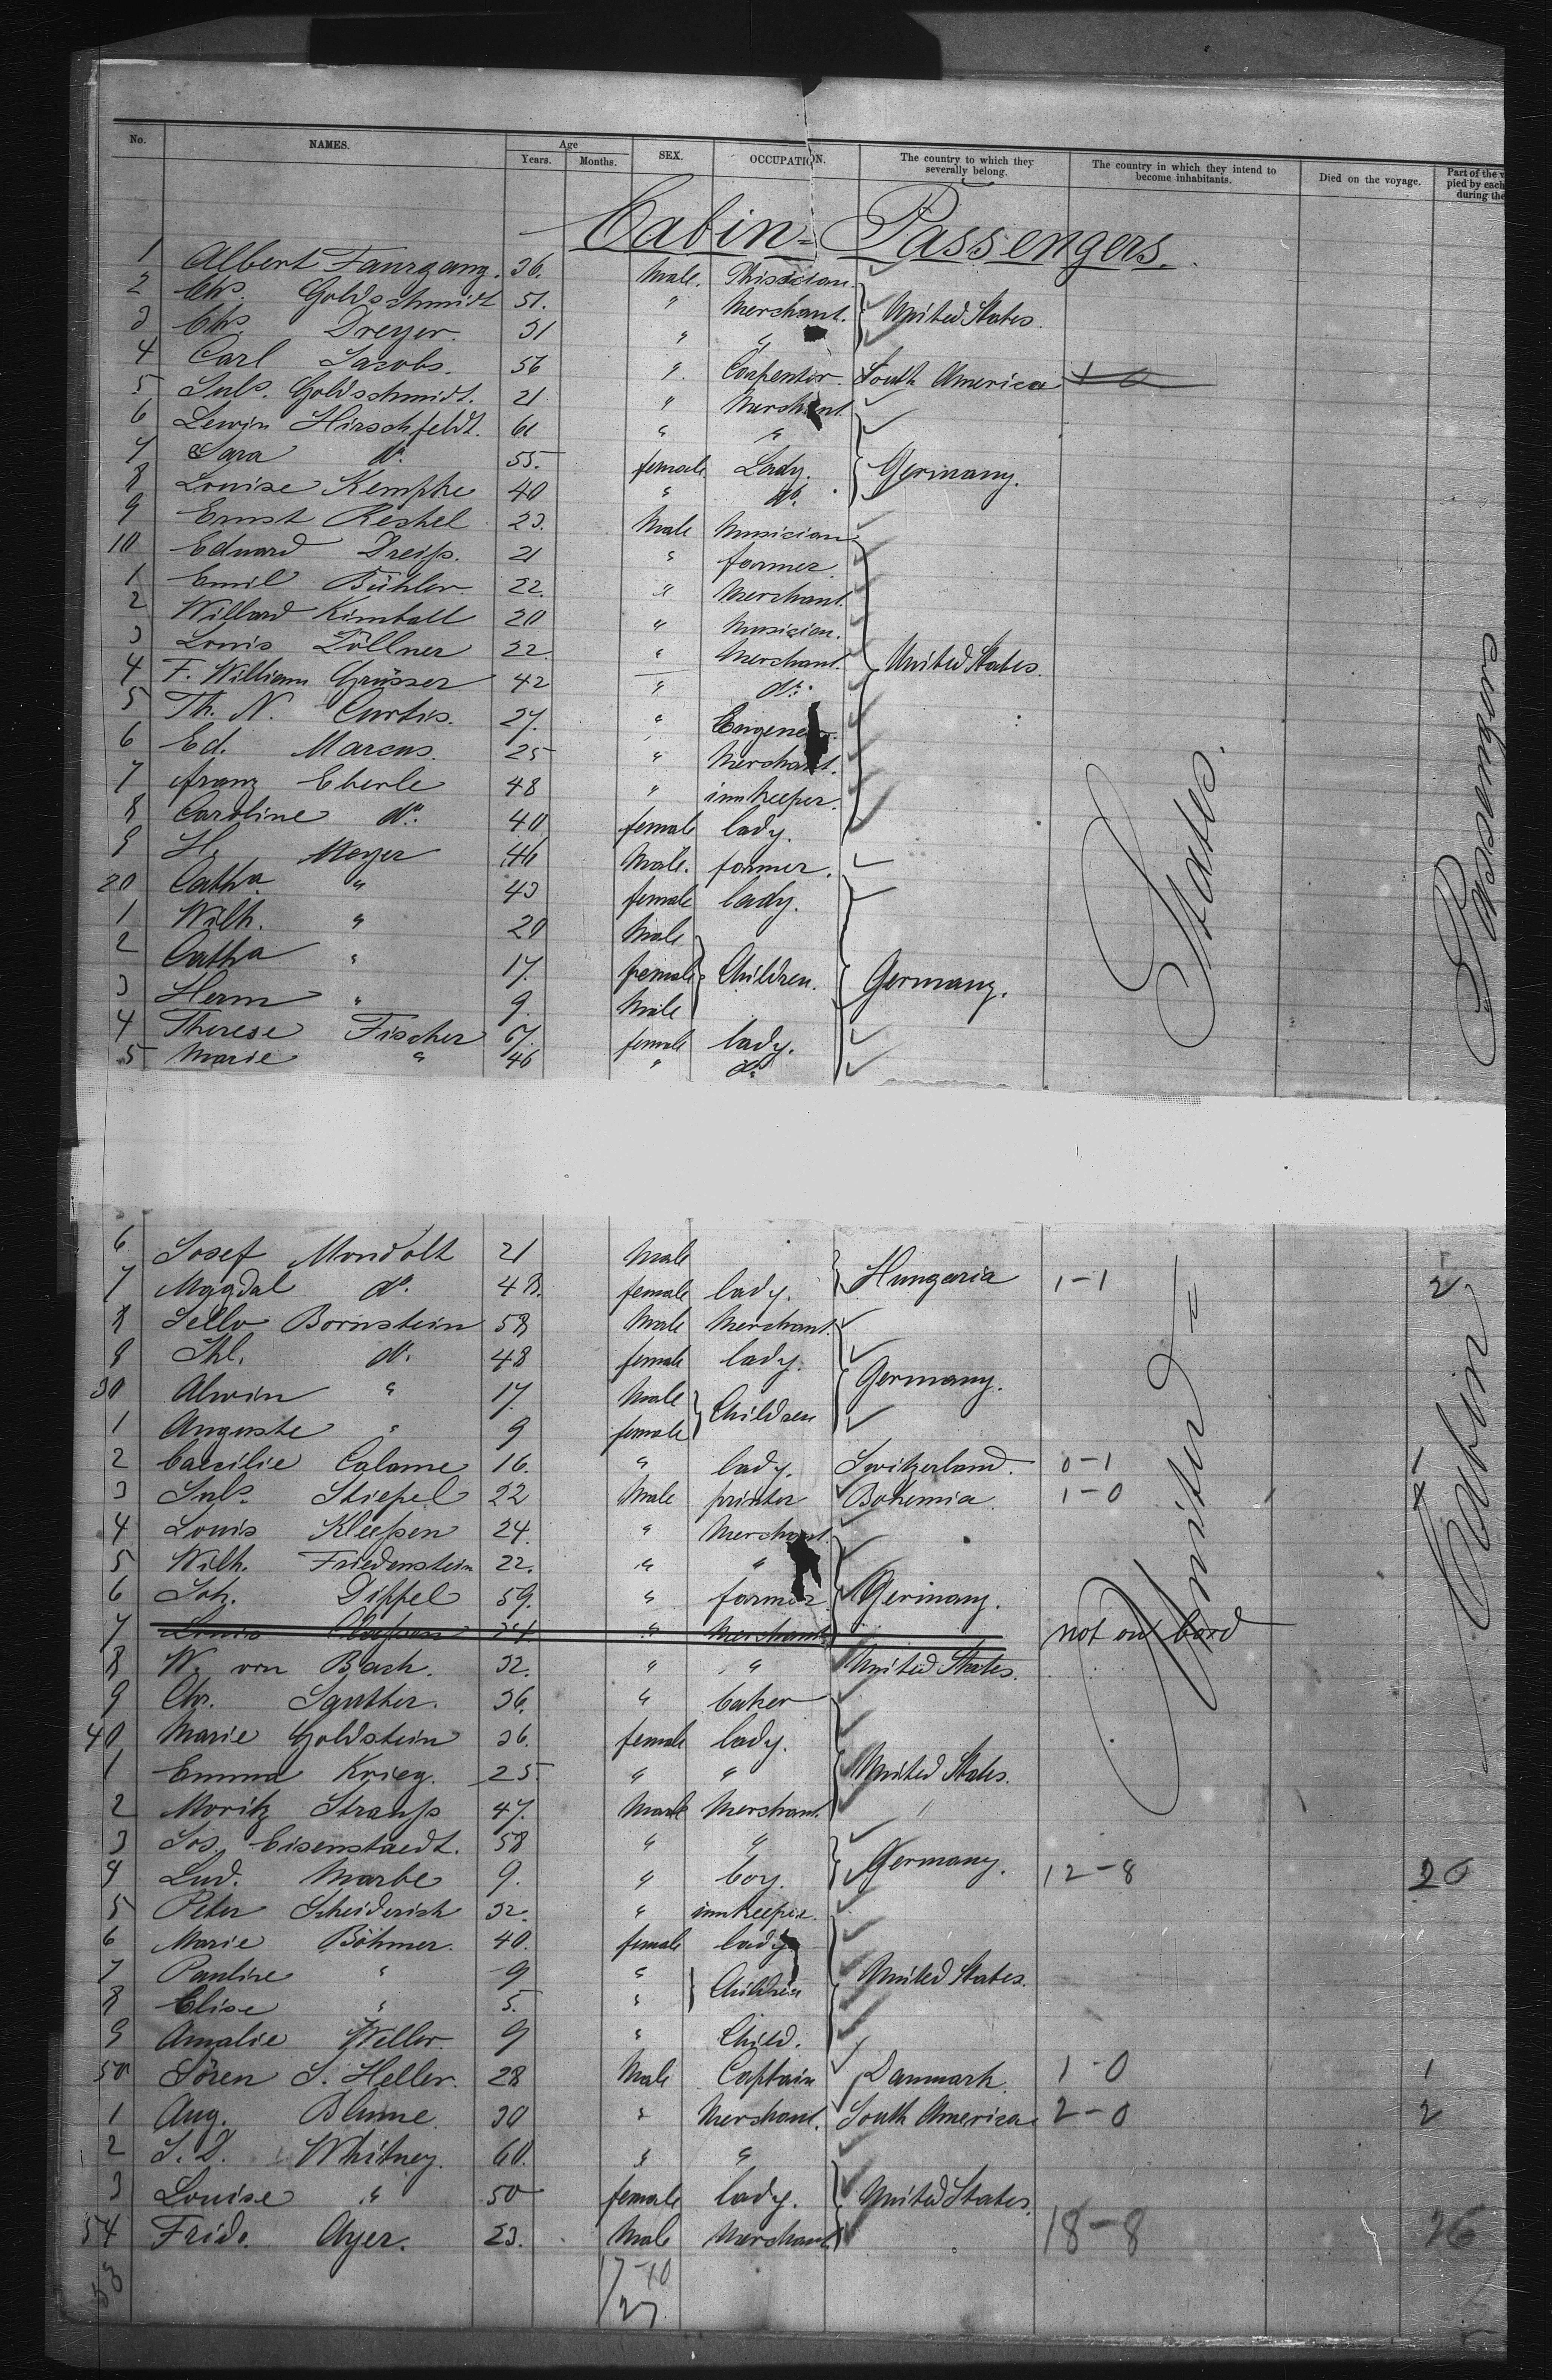 No. NAMES. Age Years. Months. SEX. OCCUPATION. The country to which they severally belong. The country in which they intend to become inhabitants. Died on the voyage. Part of the v pied by each during the
Cabin-Passengers.
1 Albert Faurgang. 36. Male. Phisician.
2 Chs. Goldschmidt 51. " Merchant. United States.
3 Chs. Dreyer. 31 " "
4 Carl Jacobs. 56 " Carpenter. South America 1 0
5 Juls. Goldschmidt. 21 " Merchant
6 Lewin Hirschfeldt. 61 " "
7 Sara do. 55. female Lady. Germany.
8 Louise Kempke 40 " do.
9 Ernst Reshel 23. Male Musician
10 Eduard Dreiss. 21 " farmer
1 Emil Bühler 22. " Merchant.
2 Willard Kimball 20 " Musician.
3 Louis Zöllner 22. " Merchant. United States.
4 F. William Grüsser 42 " do.
5 Th. N. Curtis. 27. " Engeneer.
6 Ed. Marcus. 25 " Merchant.
7 Franz Eberle 48 " innkeeper.
8 Caroline do. 40 female lady.
9 H. Meyer 46 Male. farmer.
20 Catha " 43 female lady.
1 Wilh. " 20 Male
2 Catha " 17. female Children. Germany.
3 Herm " 9. Male
4 Therese Fischer 67. female lady.
5 Marie " 46 " do.
6 Josef Mondolt 21 Male
7 Magdal do. 48. female lady. Hungaria 1-1 2
8 Bornstein 58 Male Merchant.
9 do. 48 female lady. Germany.
30 Alwin " 17. Male Children
1 Auguste " 9 female
2 Caecilie Calame 16. " lady. Switzerland. 0-1
3 Juls. Stiepel 22 Male printer Bohemia. 1-0
4 Louis Kleessen 24. " Merchant.
5 Wilh. Friedenstein 22. " "
6 Joh. Dippel 59. " farmer Germany.
7 Louis 24 " Merchant not on bord
8 W. von Bach. 32. " " United States.
9 Chr. Sauther. 36. " baker
40 Marie Goldstein 36. female lady.
1 Emma Krieg. 25. " " United States.
2 Moritz Strauss 47. Male Merchant. "
3 Jos. Eisenstaedt. 58 " "
4 Lud. Marbe 9. " boy. Germany. 12-8 20
5 Peter Scheiderich 32. " innkeeper.
6 Marie Böhmer. 40. female lady
7 Pauline " 9 " Children United States.
8 Elise " 5. "
9 Amalie Weller. 9 " Child.
50 Sören S. Heller. 28 Male Captain Danmark. 1-0 1
1 Aug. Blume 30 " Merchant. South America 2-0 2
2 S. D. Whitney. 60. " "
3 Louise " 50 female lady. United States.
54 Fridr. Ayer. 23. Male Merchant. 18-8 26
53 17-10
27
United States.
Cabin Passengers